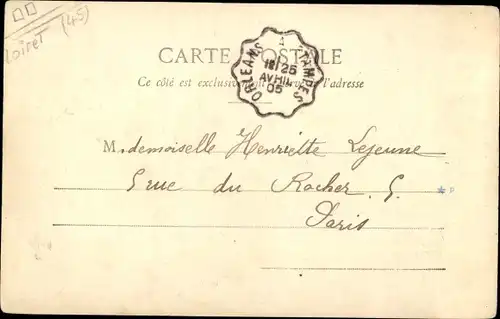 Loiret (45)
CARTE POSTALE
Ce côté est exclusivement à l'adresse
ORLEANS A ETAMPES
AVRIL
05
Mademoiselle Henriette Lejeune
5 rue du Rocher. 5.
Paris